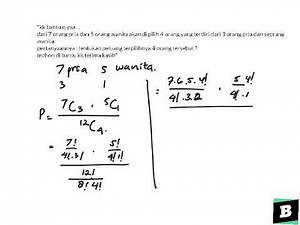 "kk bantu q yaa ..
dari 7 orang pria dan 5 orang wanita akan di pilih 4 orang yang terdiri dari 3 orang pria dan seorang
wanita.
pertanyaannya : tentukan peluang terpilihnya 4 orang tersebut ?
mohon di bantu kk terima kasih"
7 pria 5 wanita.
3 1
P = 7C3 . 5C1
12C4
= 7! / 4!.3! . 5! / 4!.1!
12!
8!.4!
= 7.6.5.4! / 4!.3.2 . 5.4! / 4!.1
B